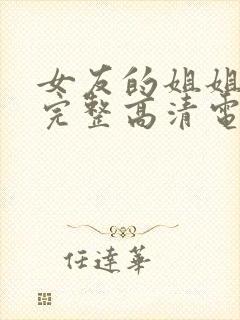 女友的姐姐
完整高清電
任達華